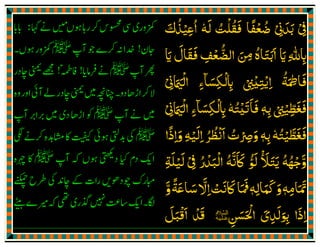 فِيْ بَدَنِيْ ضُعْفًا فَقُلْتُ لَهُ اُعِيْذُكَ
بِاللهِ يَا اَبَتَاهُ مِنَ الضُّعْفِ فَقَالَ يَا
فَاطِمَةُ اِيْتِيْنِيْ بِالْكِسَآءِ الْيَمَانِيْ
فَغَطِّيْنِيْ بِهِ فَاَتَيْتُهُ بِالْكِسَآءِ الْيَمَانِيْ
فَغَطَّيْتُهُ بِهِ وَصِرْتُ اَنْظُرُ اِلَيْهِ وَاِذَا
وَجْهُهُ يَتَلَأْلَؤُ كَاَنَّهُ الْبَدْرُ فِيْ لَيْلَةِ
تَمَامِهِ وَكَمَالِهِ فَمَا كَانَتْ اِلَّا سَاعَةً وَّ
اِذَا بِوَلَدِيَ الْحَسَنِ قَدْ اَقْبَلَ
کمزوری سی محسوس کر رہا ہوں میں نے کہا: بابا
جان! خدا نہ کرے جو آپ ﷺ کمزور ہوں۔
پھر آپ ﷺ نے فرمایا! فاطمہ! مجھے یمنی چادر
لا کر اڑھا دو۔ چنانچہ میں یمنی چادر لے آئی اور وہ
میں نے آپ ﷺ کو اڑھا دی میں برابر آپ
ﷺ کی بدلتی ہوئی کیفیت کا مشاہدہ کرنے لگی
ایک دم کیا دیکھتی ہوں کہ آپ ﷺ کا چہرہ
مبارک چودھویں رات کے چاند کی طرح چمکنے
لگا۔ ایک ساعت نہیں گذری تھی کہ میرے بیٹے